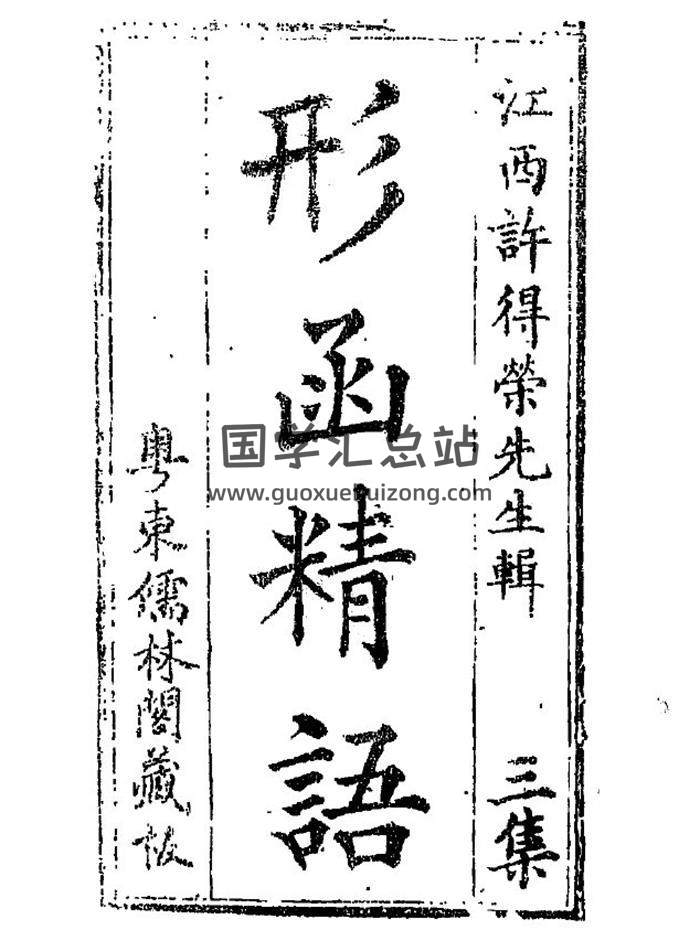 江西許得榮先生輯 三集
形函精語
粤東儒林閣藏板
国学汇总站
www.guoxuehuizong.com